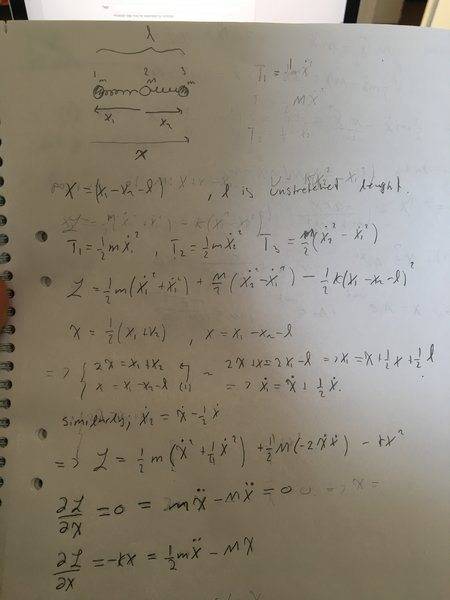 l
1 2 3
m M m
x₁ x₂
X
T₁ = ½mẋ²
x = (x₁ - x₂ - l) , l is unstretched lenght.
T₁ = ½mẋ₁² , T₂ = ½mẋ₂² T₃ = M/2(ẋ₂² - ẋ₁²)
L = ½m(ẋ₁² + ẋ₂²) + M/2(ẋ₂² - ẋ₁²) - ½k(x₁ - x₂ - l)²
X = ½(x₁ + x₂) , x = x₁ - x₂ - l
=> { 2X = x₁ + x₂
x = x₁ - x₂ - l ~ 2X + x = 2x₁ - l => x₁ = X + ½x + ½l
=> ẋ₁ = Ẋ + ½ẋ.
similarly; ẋ₂ = Ẋ - ½ẋ
=> L = ½m(Ẋ² + ¼ẋ²) + ½M(-2Ẋẋ) - kx²
∂L/∂X = 0 = mẌ - Mẍ = 0
∂L/∂x = -kx = ½mẍ - MẌ